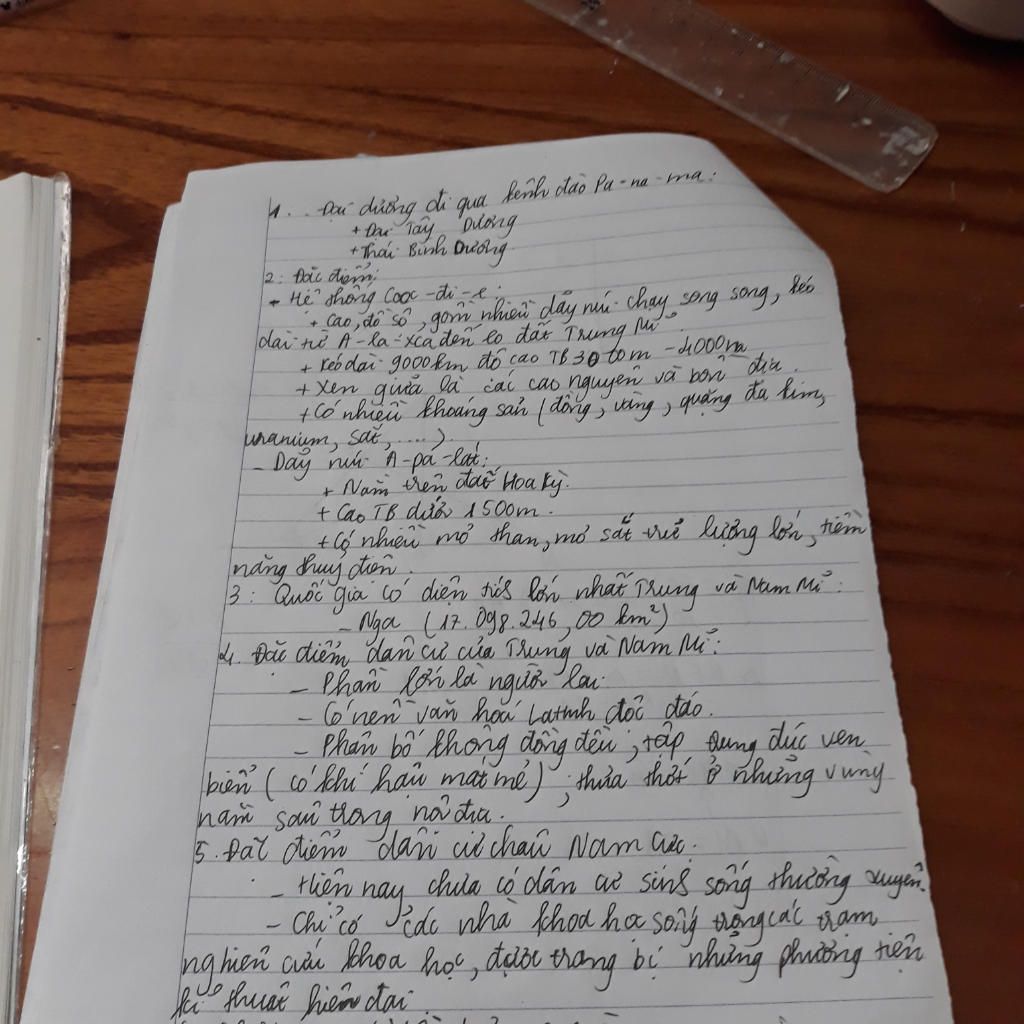 1. Đại dương đi qua kênh đào Pa-na-ma:
+ Đại Tây Dương
+ Thái Bình Dương
2: Đặc điểm:
- Hệ thống Cooc-đi-e:
+ Cao, đồ sộ, gồm nhiều dãy núi chạy song song, kéo
dài từ A-la-xca đến eo đất Trung Mĩ
+ Kéo dài 9000km độ cao TB 3000m - 4000m
+ Xen giữa là các cao nguyên và bồn địa.
+ Có nhiều khoáng sản (đồng, vàng, quặng đa kim,
uranium, sắt, ....).
- Dãy núi A-pa-lat:
+ Nằm trên đất Hoa Kỳ.
+ Cao TB dưới 1500m.
+ Có nhiều mỏ than, mỏ sắt trữ lượng lớn, tiềm
năng thuỷ điện.
3: Quốc gia có diện tích lớn nhất Trung và Nam Mĩ:
- Nga (17.098.246,00 km²)
4. Đặc điểm dân cư của Trung và Nam Mĩ:
- Phần lớn là người lai.
- Có nền văn hoá Latinh độc đáo.
- Phân bố không đồng đều, tập trung đúc ven
biển (có khí hậu mát mẻ); thưa thớt ở những vùng
nằm sâu trong nội địa.
5. Đặc điểm dân cư châu Nam Cực.
- Hiện nay chưa có dân cư sinh sống thường xuyên.
- Chỉ có các nhà khoa học sống trong các trạm
nghiên cứu khoa học, được trang bị những phương tiện
kĩ thuật hiện đại